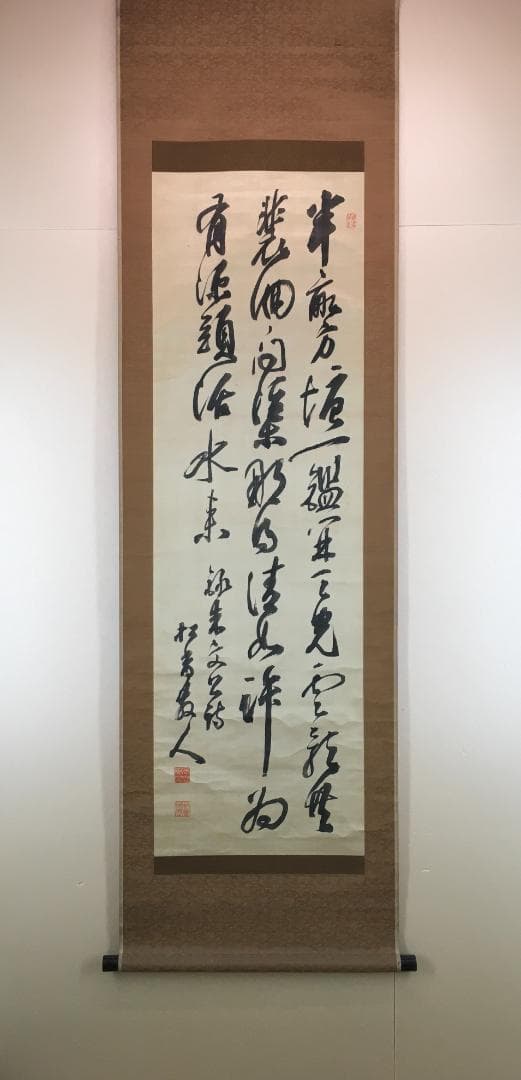 半畝方塘一鑑開天光雲影共
裴徊問渠那得清如許為
有源頭活水来
録朱文公詩
松散人